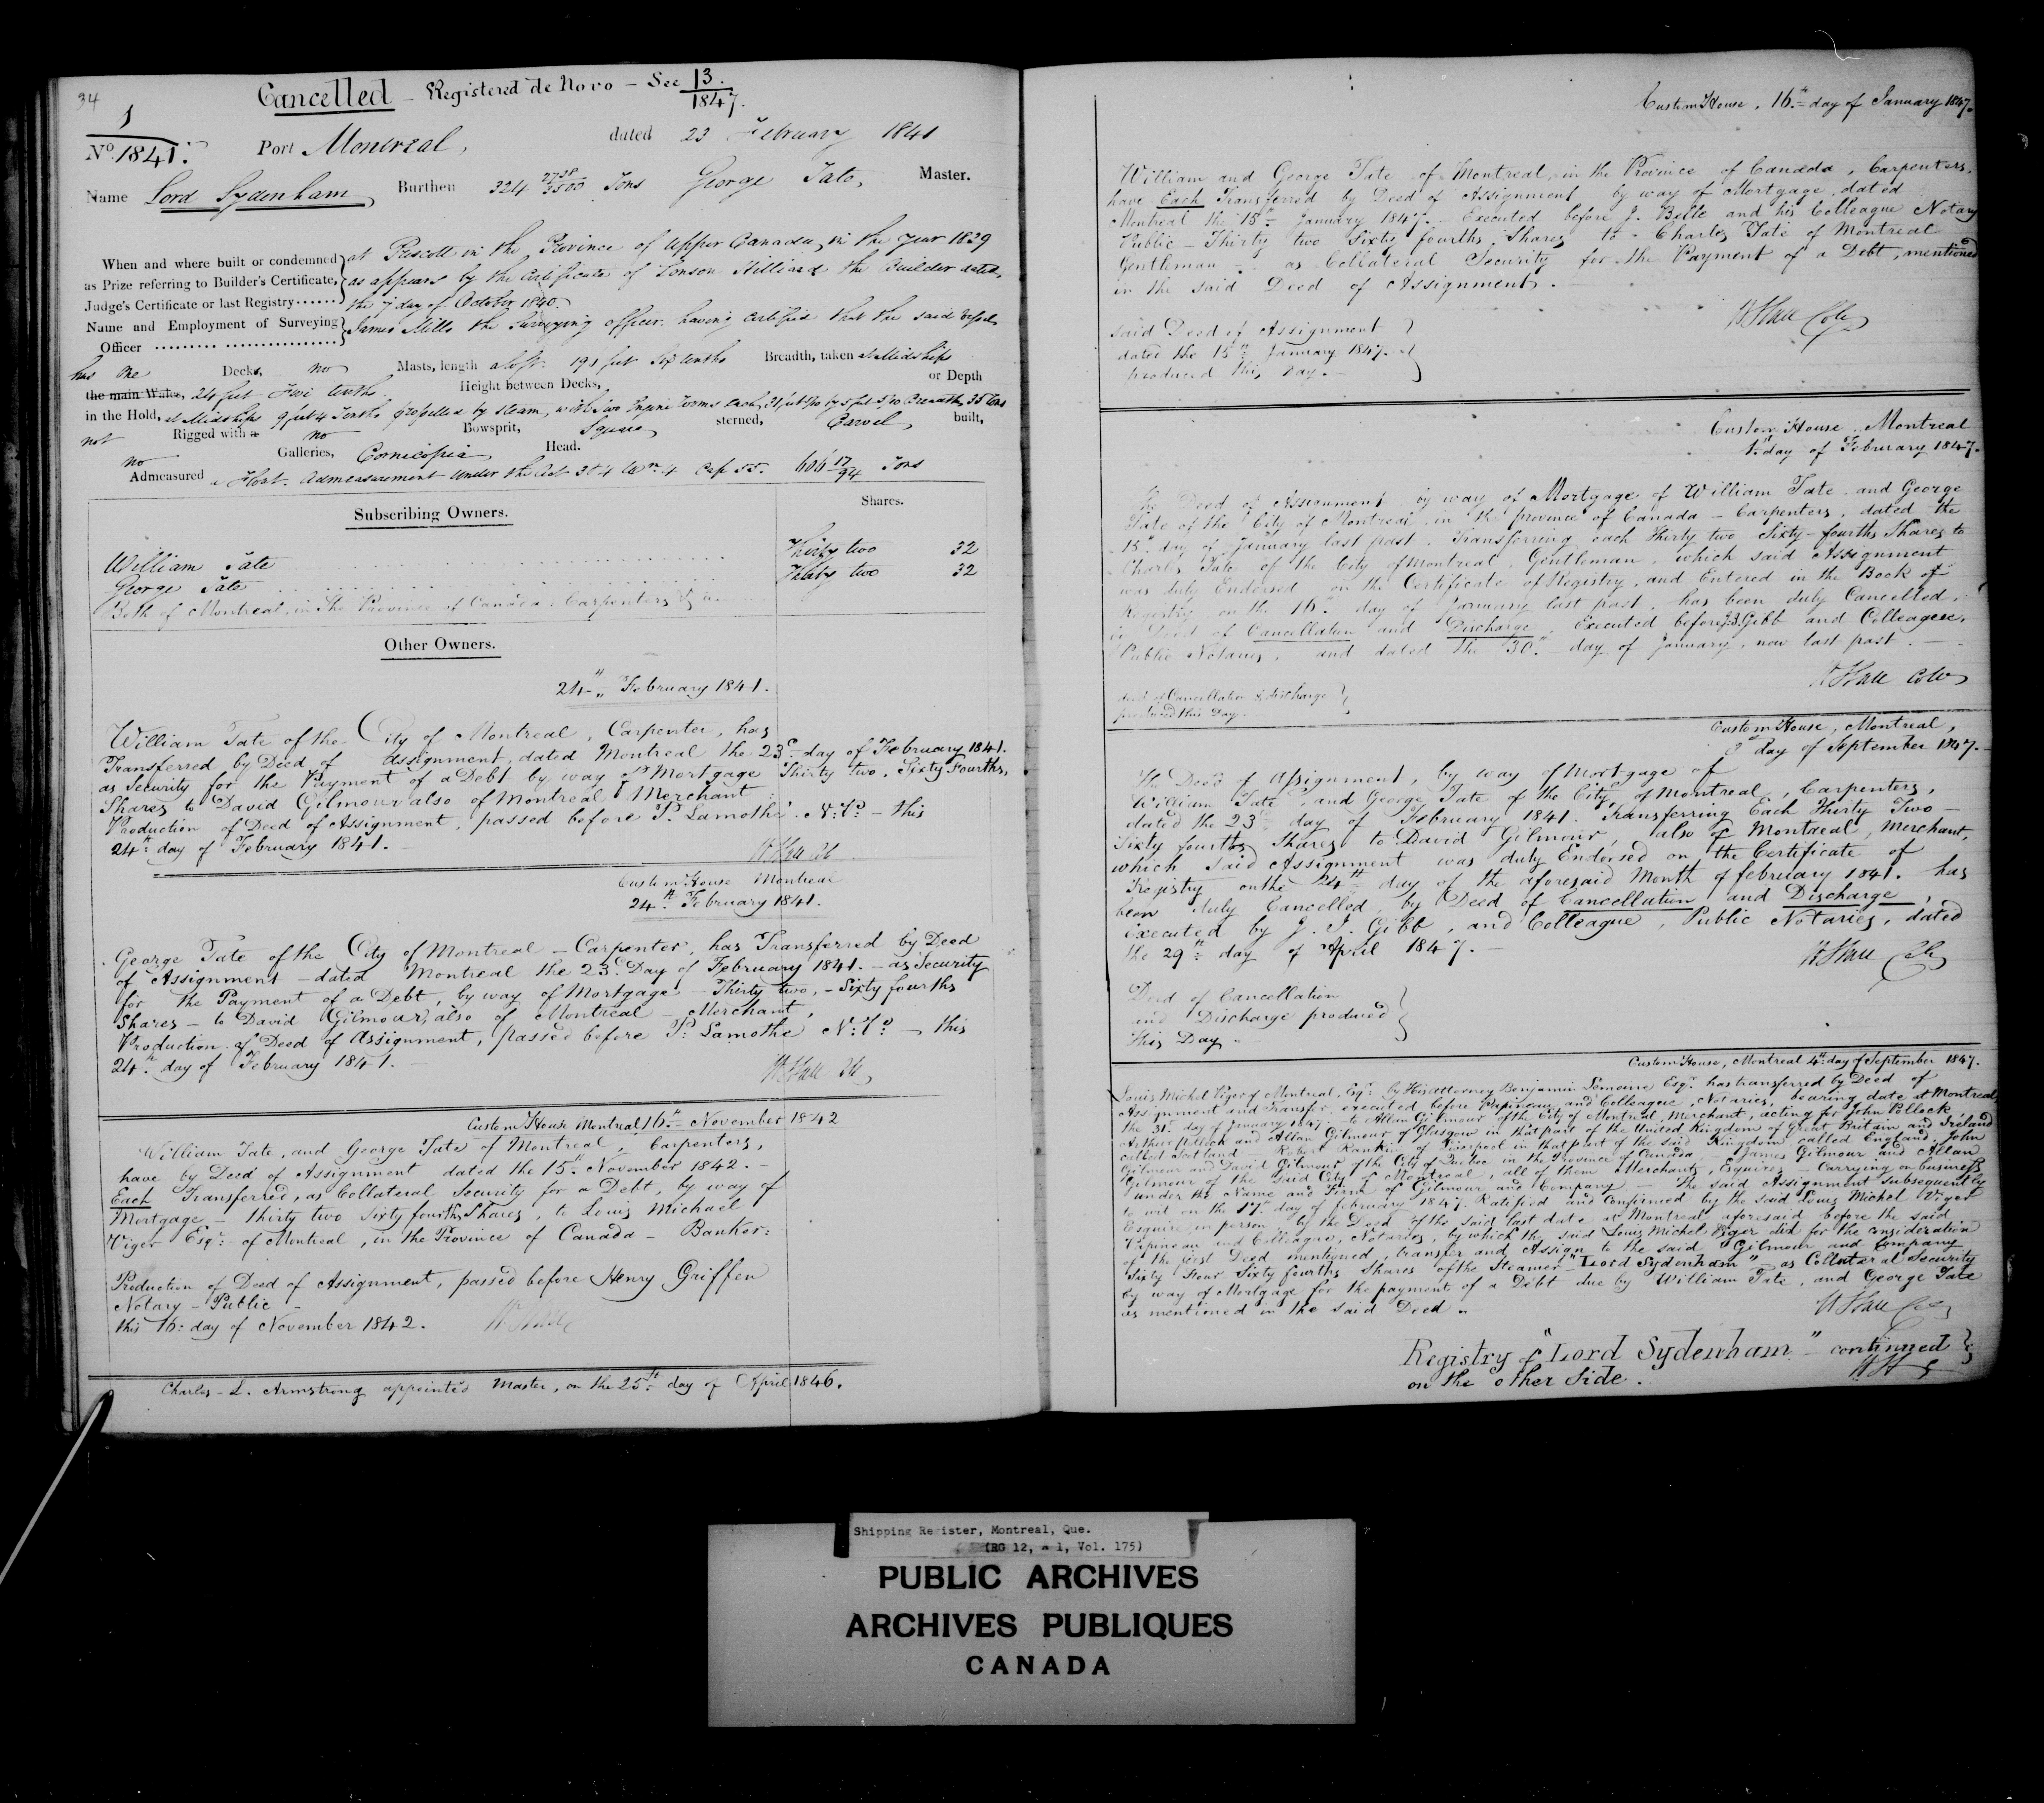 34
Cancelled - Registered de Novo - See 13/1847.
1
No. 1841. Port Montreal, dated 23 February 1841
Name Lord Sydenham, Burthen 324 2738/3500 Tons George Tate, Master.
When and where built or condemned as Prize referring to Builder's Certificate, Judge's Certificate or last Registry
at Prescott in the Province of Upper Canada, in the year 1839
as appears by the Certificate of Hilliard the Builder dated
the 7 day of October 1840.
Name and Employment of Surveying Officer
James Mills the Surveying officer having certified that the said vessel
has One Decks, no Masts, length aloft 191 feet Six tenths Breadth, taken at Midships
the main Wale, 24 feet tenths Height between Decks, or Depth
in the Hold, at Midships 9 feet 4 Tenths propelled by steam, with
not Rigged with a no Bowsprit, Square sterned, Carvel built,
no Galleries, Cornicopia Head.
Admeasured a float. Admeasurement under the Act 3 & 4 Wm. 4 Cap 55. 606 17/94 Tons
Subscribing Owners. Shares.
William Tate Thirty two 32
George Tate Thirty two 32
Both of Montreal in the Province of Canada, Carpenters
Other Owners.
24th February 1841.
William Tate of the City of Montreal, Carpenter, has
Transferred by Deed of assignment, dated Montreal the 23d day of February 1841.
as Security for the Payment of a Debt by way of Mortgage Thirty two, Sixty Fourths,
Shares to David Gilmour also of Montreal Merchant
Production of Deed of Assignment, passed before P. Lamothe N.P. - this
24th day of February 1841.
Custom House Montreal
24th February 1841.
George Tate of the City of Montreal - Carpenter, has Transferred by Deed
of Assignment - dated Montreal the 23d Day of February 1841. - as Security
for the Payment of a Debt, by way of Mortgage - Thirty two, - Sixty fourths
Shares - to David Gilmour, also of Montreal - Merchant,
Production of Deed of Assignment, passed before P. Lamothe N.P. - this
24th day of February 1841. -
Custom House Montreal 16th November 1842
William Tate, and George Tate of Montreal, Carpenters,
have by Deed of Assignment dated the 15th November 1842. -
Each Transferred, as Collateral Security for a Debt, by way of
Mortgage - thirty two Sixty fourths Shares, to Louis Michael
Viger Esqr. of Montreal, in the Province of Canada - Banker:
Production of Deed of Assignment, passed before Henry Griffen
Notary - Public -
this 16th day of November 1842.
Charles L. Armstrong appointed Master, on the 25th day of April 1846.
Custom House, 16th day of January 1847.
William and George Tate of Montreal, in the Province of Canada, Carpenters,
have Each Transferred by Deed of Assignment by way of Mortgage, dated
Montreal the 15th January 1847. - Executed before J. Belle and his Colleague Notary
Public - Thirty two Sixty fourths Shares to - Charles Tate of Montreal
Gentleman - as Collateral Security for the Payment of a Debt, mentioned
in the said Deed of Assignment.
said Deed of Assignment
dated the 15th January 1847.
produced this Day. -
Custom House, Montreal
1st day of February 1847.
The Deed of Assignment by way of Mortgage of William Tate and George
Tate of the City of Montreal in the province of Canada - Carpenters, dated the
15th day of January last past. Transferring each Thirty two Sixty-fourths Shares to
Charles Tate of the City of Montreal, Gentleman, which said Assignment
was duly Endorsed on the Certificate of Registry, and Entered in the Book of
Registry on the 16th day of January last past, has been duly Cancelled,
Deed of Cancellation and Discharge, Executed before J.J. Gibb and Colleague,
Public Notaries, and dated the 30th day of January, now last past. -
Deed of Cancellation & discharge
produced this Day.
Custom House, Montreal,
3d day of September 1847. -
The Deed of Assignment, by way of Mortgage of
William Tate, and George Tate of the City of Montreal, Carpenters,
dated the 23d day of February 1841. Transferring Each Thirty Two -
Sixty fourths Shares to David Gilmour, also of Montreal, Merchant,
which said Assignment was duly Endorsed on the Certificate of
Registry on the 24th day of the aforesaid Month of february 1841. has
been duly Cancelled, by Deed of Cancellation and Discharge,
Executed by J. J. Gibb, and Colleague, Public Notaries, dated
the 29th day of April 1847. -
Deed of Cancellation
and Discharge produced
this Day -
Custom House, Montreal 4th day of September 1847.
Louis Michel Viger of Montreal, Esqr. by His attorney Benjamin Lemoine Esqr. has transferred by Deed of
Assignment and Transfer, executed before Papineau and Colleague, Notaries, bearing date at Montreal
the 31st day of January 1847. - to Allan Gilmour of the City of Montreal, Merchant, acting for John Pollock
Arthur Pollock and Allan Gilmour of Glasgow in that part of the United Kingdom of Great Britain and Ireland
called Scotland Robert Rankin of Liverpool in that part of the said Kingdom called England, John
Gilmour and David Gilmour of the City of Quebec in the Province of Canada, - James Gilmour and Allan
Gilmour of the said City of Montreal, all of them Merchants, Esquires - Carrying on business
under the Name and Firm of Gilmour and Company - The said Assignment subsequently
to wit on the day of february 1847. Ratified and Confirmed by the said Louis Michel Viger
Esquire, in person, by the Deed of the said last date at Montreal aforesaid before the said
Papineau and Colleague, Notaries, by which the said Louis Michel Viger did for the consideration
of the first Deed mentioned, transfer and Assign to the said Gilmour and Company
Sixty Four Sixty fourths Shares of the Steamer "Lord Sydenham" as Collateral Security
by way of Mortgage for the payment of a Debt due by William Tate, and George Tate
as mentioned in the said Deed.
Registry of "Lord Sydenham" - continued
on the other Side.
Shipping Register, Montreal, Que.
(RG 12, a 1, Vol. 175)
PUBLIC ARCHIVES
ARCHIVES PUBLIQUES
CANADA